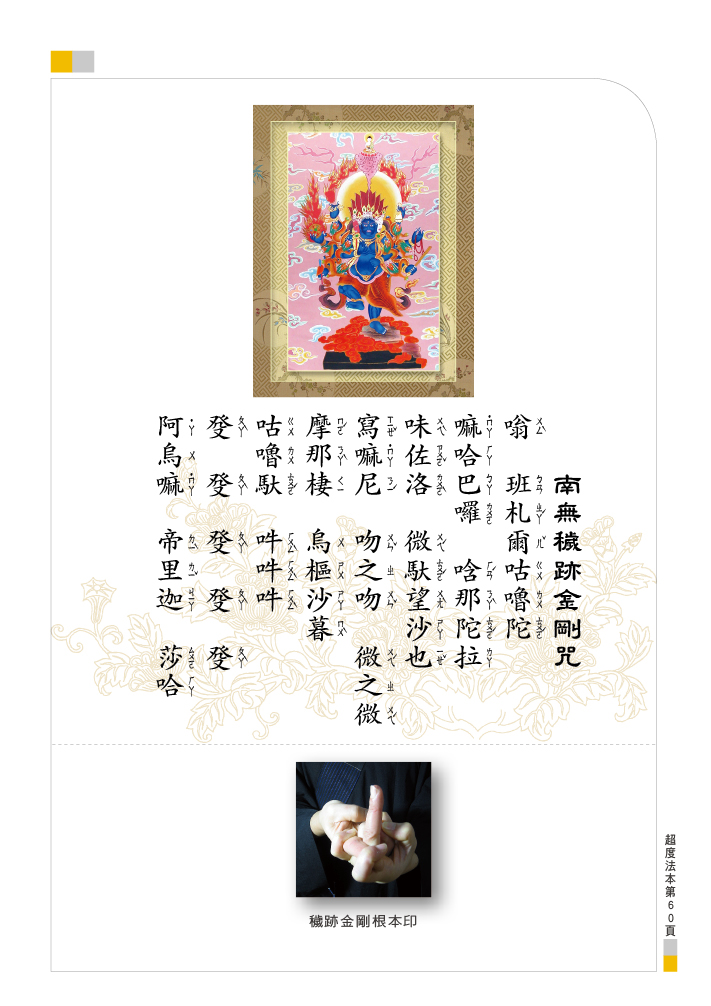 南無穢跡金剛咒
翁 班札爾 咕嚕陀
嘛哈 巴囉 唅那陀拉
味佐洛 微馱望沙也
寫嘛尼 吻之吻 微之微
摩那棲 烏樞沙暮
咕嚕馱 吽吽吽
癹 癹 癹 癹 癹
阿烏嘛 帝里迦 莎哈
穢跡金剛根本印
超度法本第60頁